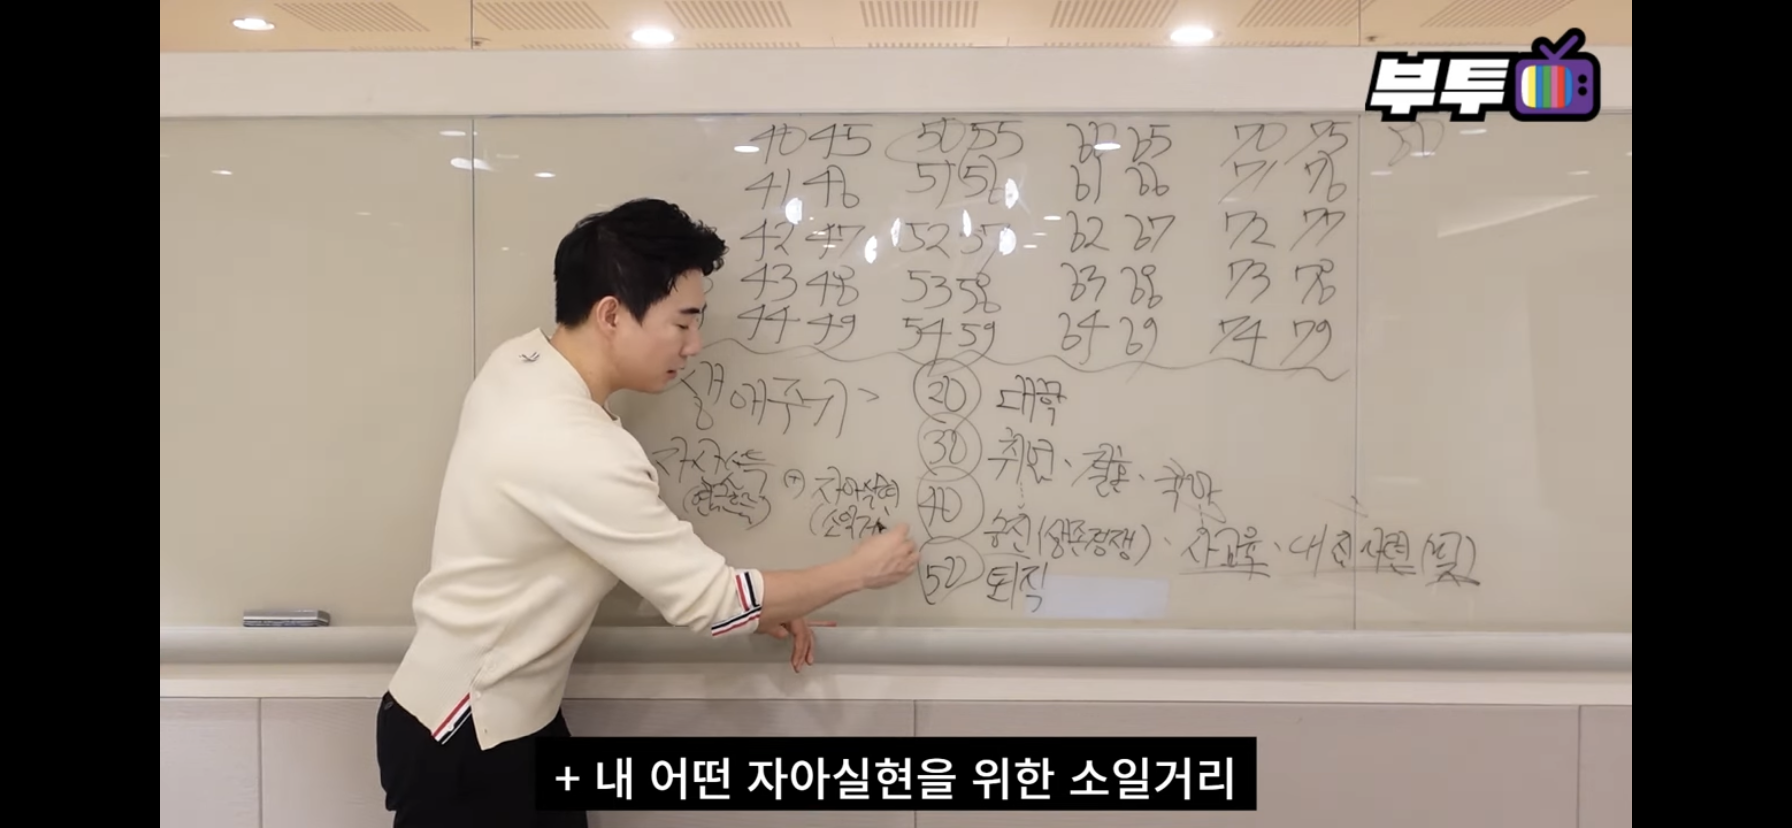 부투
40 45 50 55 60 65 70 75 80
41 46 51 56 61 66 71 76
42 47 52 57 62 67 72 77
43 48 53 58 63 68 73 78
44 49 54 59 64 69 74 79
생애주기> 20 대학
30 취업、결혼、육아
자산소득 (현금흐름) + 자아실현 (소일거
40 승진(생존경쟁)、사교육、내집마련(빚)
50 퇴직
+ 내 어떤 자아실현을 위한 소일거리